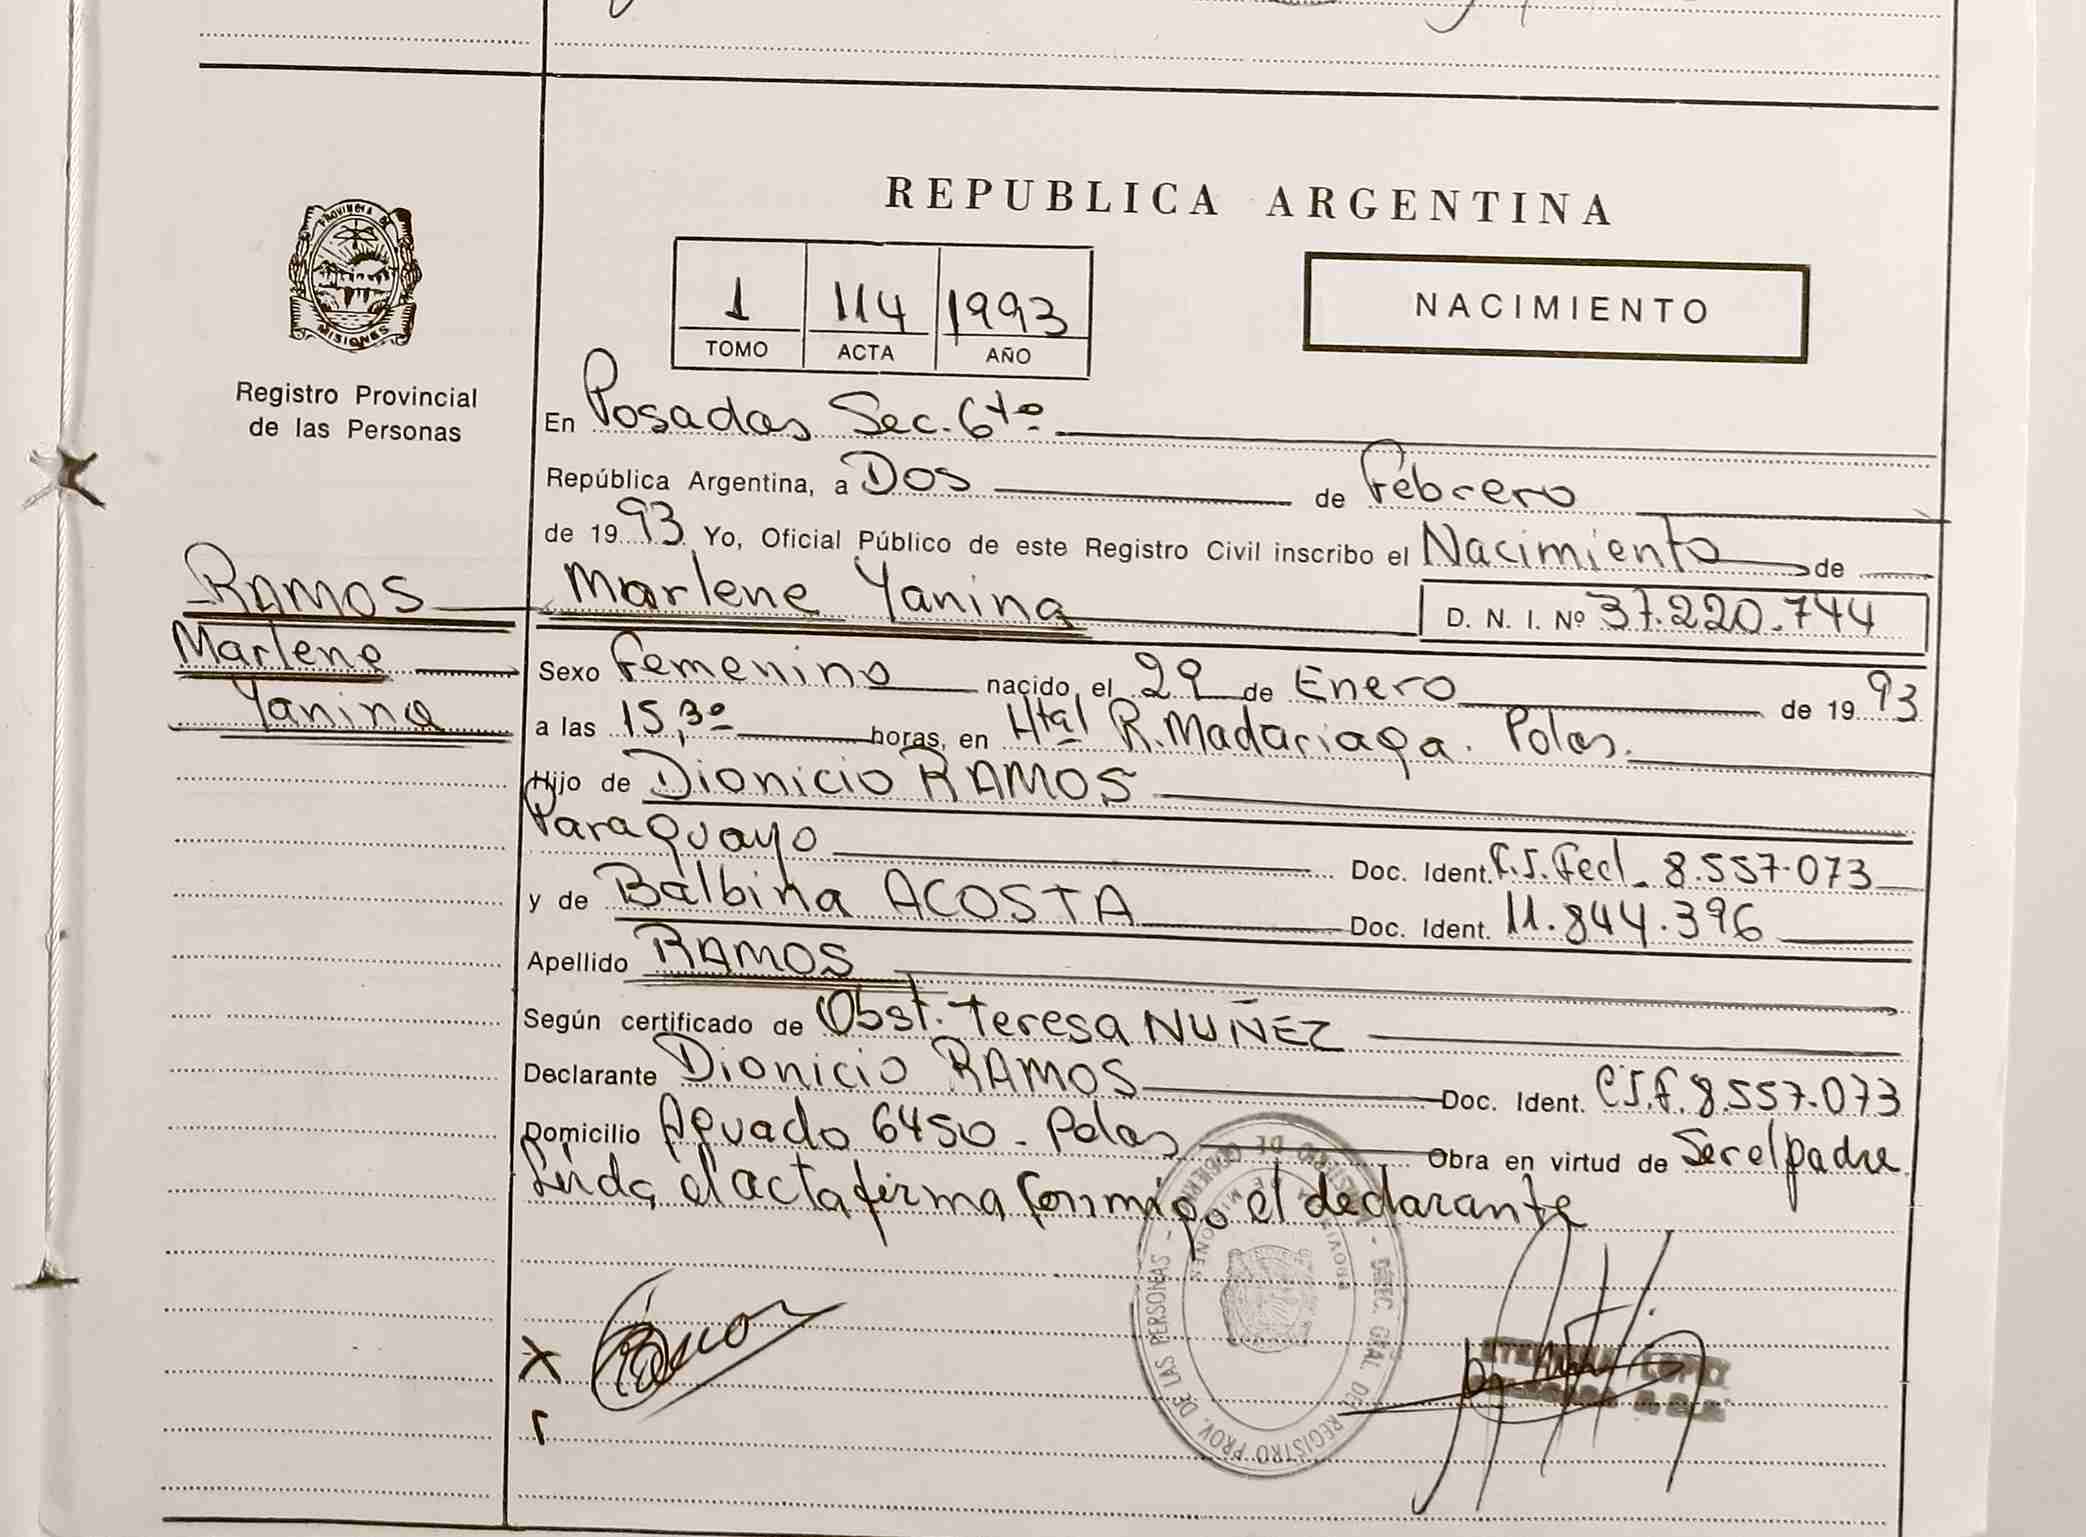 REPUBLICA ARGENTINA
PROVINCIA DE
MISIONES
Registro Provincial
de las Personas
1 114 1993
TOMO ACTA AÑO
NACIMIENTO
En Posadas Sec. 6ta
República Argentina, a Dos de Febrero
de 1993 Yo, Oficial Público de este Registro Civil inscribo el Nacimiento de
RAMOS
Marlene
Yanina
Marlene Yanina D. N. I. Nº 37.220.744
Sexo Femenino nacido el 29 de Enero de 1993
a las 15,30 horas, en Htal R. Madariaga. Pdas.
Hijo de Dionicio RAMOS
Paraguayo Doc. Ident. C.I. Fecl. 8.557.073
y de Balbina ACOSTA Doc. Ident. 11.844.396
Apellido RAMOS
Según certificado de Obst. Teresa NUÑEZ
Declarante Dionicio RAMOS Doc. Ident. C.I.F. 8.557.073
Domicilio Aguado 6450 - Pdas Obra en virtud de Ser el padre
Leida el acta firma conmigo el declarante
MINISTERIO DE GOBIERNO - DIREC. GRAL. DEL REGISTRO PROV. DE LAS PERSONAS -
PROVINCIA DE MISIONES
X
LOPEZ